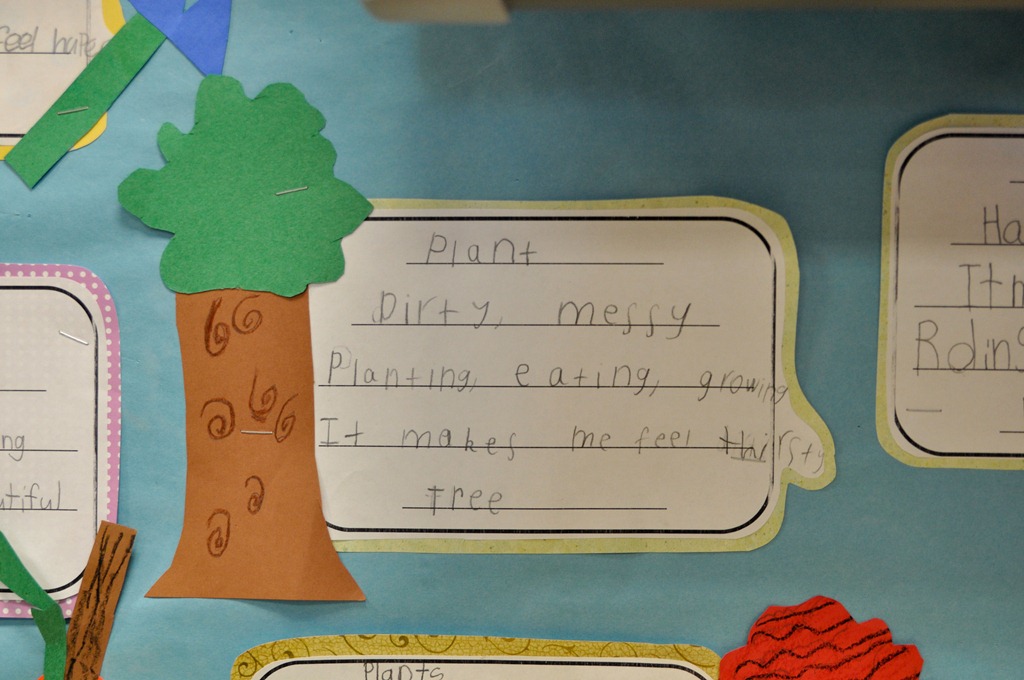 feel
Plant
Dirty, messy
Planting, eating, growing,
It makes me feel thirsty
tree
ng
utiful
Ha
Plants